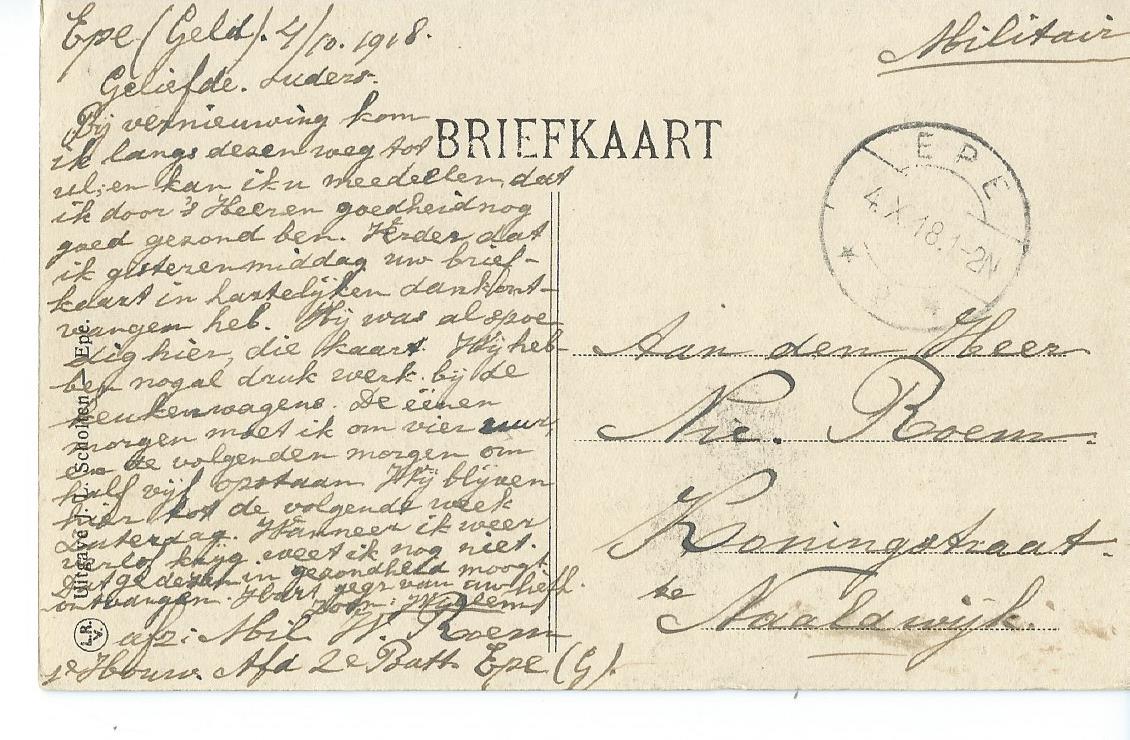 Epe (Geld). 4/10. 1918.
Geliefde. Ouders.
Bij vernieuwing kom
ik langs dezen weg tot
ul; en kan ik u meedeelen, dat
ik door 's Heeren goedheid nog
goed gezond ben. Verder dat
ik gisterenmiddag uw brief-
kaart in hartelijken dank ont-
vangen heb. Hij was al spoe
dig hier, die kaart. Wij heb-
ben nogal druk werk bij de
keukenwagens. De éénen
morgen moet ik om vier uur,
en de volgenden morgen om
half vijf opstaan Wij blijven
hier tot de volgende week
Zaterdag. Wanneer ik weer
verlof krijg weet ik nog niet.
Dat ge dezen in gezondheid moogt
ontvangen. Hart. gegr van uw liefh.
zoon: Willem
afz: Mil W. Roem
1e Houw. Afd 2e Batt. Epe (G).
Militair
BRIEFKAART
EPE
4.X.18.1-2N
Aan den Heer
Nic. Roem.
Koningstraat.
te Naaldwijk.
Uitgave J. L. Scholten — Epe.